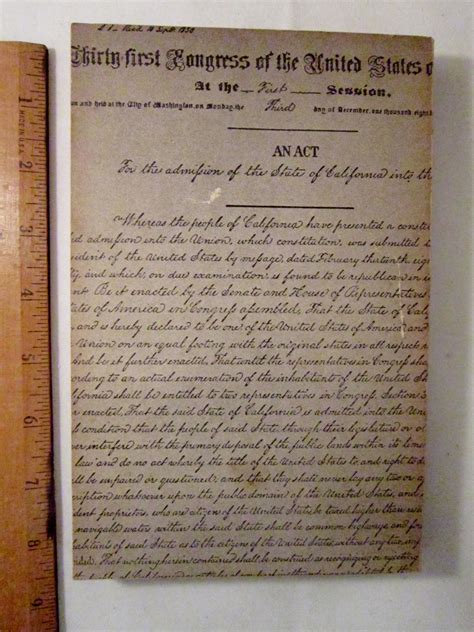 Sept. 1850
Thirty first Congress of the United States o
At the First Session.
and held at the City of Washington, on Monday, the Third day of December, one thousand eight
AN ACT
For the admission of the State of California into th
Whereas the people of California have presented a consti
admission into the Union, which constitution, was submitted
sident of the United States by message, dated February thirteenth eig
and which on due examination, is found to be republican in
nt Be it enacted by the Senate and House of Representatives
tates of America in Congress assembled, That the State of Cal
and is hereby declared to be one of the United States of America and
Union on an equal footing with the original states in all respects
nd be it further enacted, That until the representatives in Congress shall
ording to an actual enumeration of the inhabitants of the United States
alifornia shall be entitled to two representatives in Congress. Section
enacted, That the said State of California is admitted into the
condition that the people of said State, through their legislature or
interfere with the primary disposal of the public lands within its
law and do no act whereby the title of the United States to, and right to
ll be impaired or questioned; and that they shall never lay any tax or a
ription whatsoever upon the public domain of the United States, and
dent proprietors, who are citizens of the United States, be taxed higher than
navigable waters within the said State shall be common highways, and for
habitants of said State as to the citizens of the United States, without any tax,
That nothing herein contained shall be construed as recognizing or rejecting
MADE IN U.S.A.
1
2
3
4
5
6
7
8
9